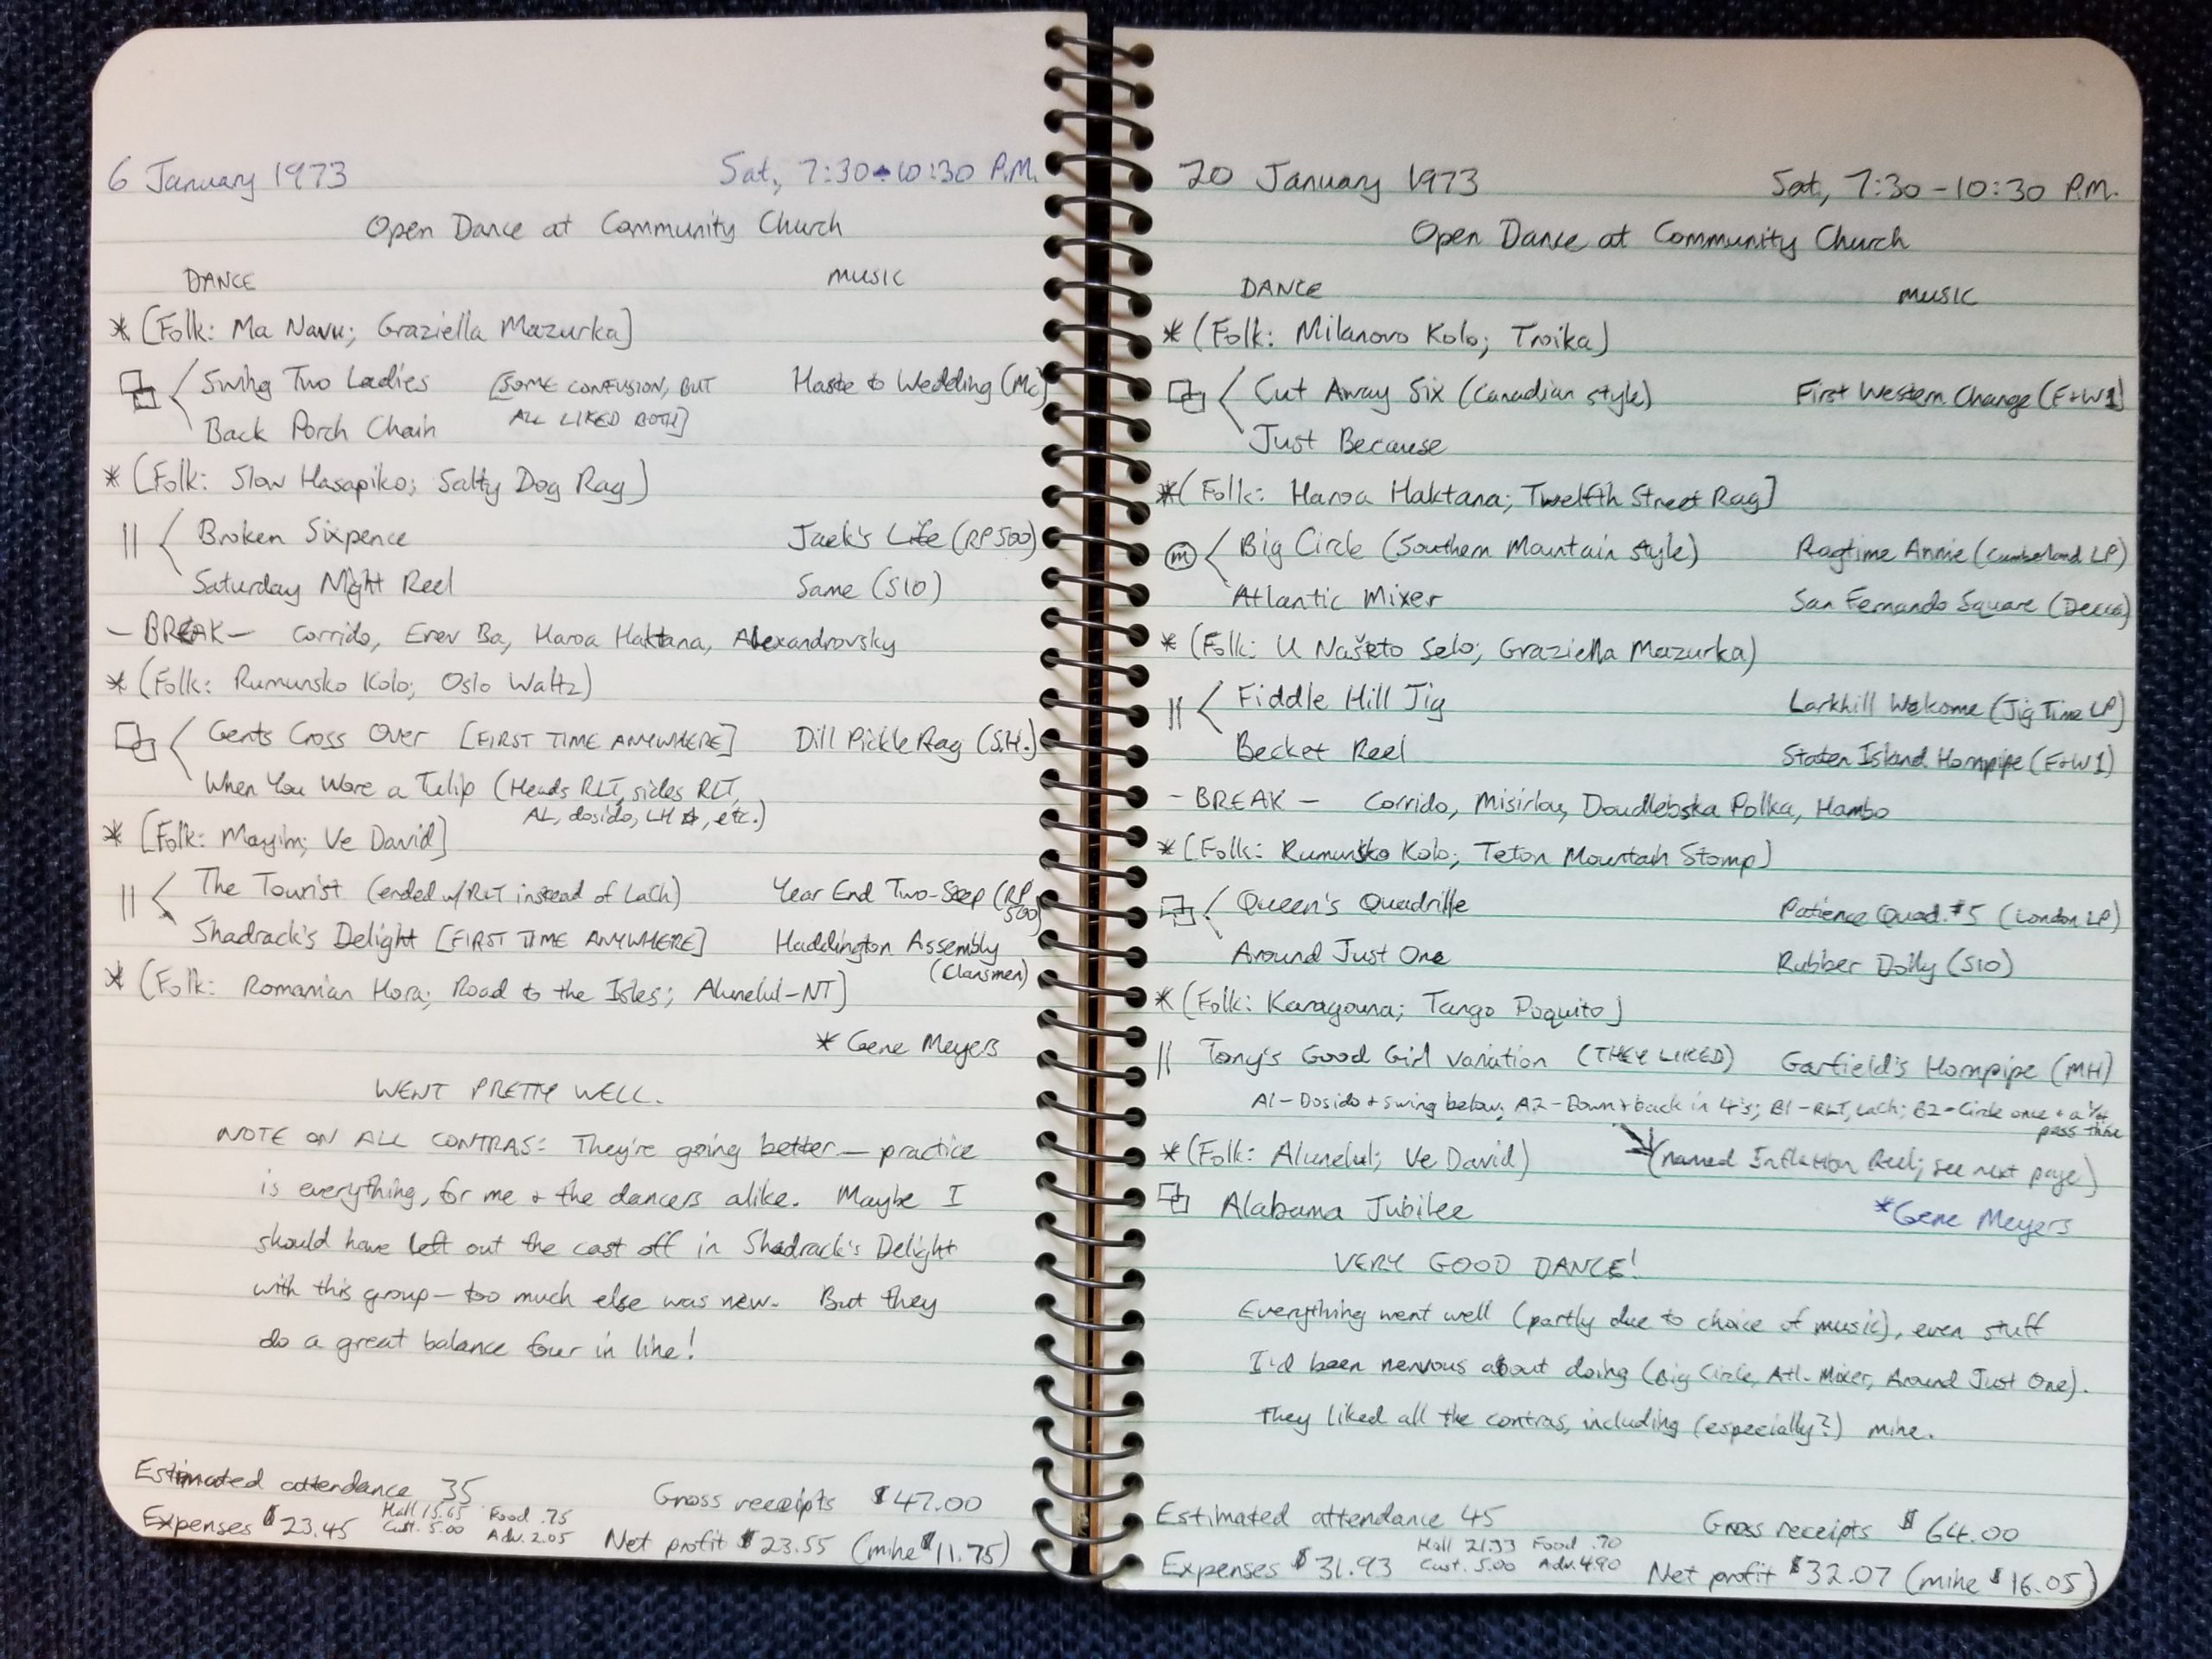 6 January 1973 Sat, 7:30-10:30 P.M.
Open Dance at Community Church
DANCE MUSIC
* [Folk: Ma Navu; Graziella Mazurka]
Swing Two Ladies [SOME CONFUSION, BUT Haste to Wedding (Mc)
Back Porch Chain ALL LIKED BOTH]
* (Folk: Slow Hasapiko; Salty Dog Rag)
Broken Sixpence Jack's Life (RP500)
Saturday Night Reel Same (S10)
- BREAK - Corrido, Erev Ba, Haroa Haktana, Alexandrovsky
* (Folk: Rumunsko Kolo; Oslo Waltz)
Gents Cross Over [FIRST TIME ANYWHERE] Dill Pickle Rag (S.H.)
When You Wore a Tulip (Heads RLT, sides RLT,
AL, dosido, LH ☆, etc.)
* [Folk: Mayim; Ve David]
The Tourist (ended w/RLT instead of Lach) Year End Two-Step (RP
500)
Shadrack's Delight [FIRST TIME ANYWHERE] Haddington Assembly
(Clansmen)
* (Folk: Romanian Hora; Road to the Isles; Alunelul-NT)
* Gene Meyers
WENT PRETTY WELL.
NOTE ON ALL CONTRAS: They're going better — practice
is everything, for me + the dancers alike. Maybe I
should have left out the cast off in Shadrack's Delight
with this group — too much else was new. But they
do a great balance four in line!
Estimated attendance 35 Gross receipts $47.00
Hall 15.65 Food .75
Expenses $23.45 Cust. 5.00 Adv. 2.05 Net profit $23.55 (mine $11.75)
20 January 1973 Sat, 7:30-10:30 P.M.
Open Dance at Community Church
DANCE MUSIC
* (Folk: Milanovo Kolo; Troika)
Cut Away Six (Canadian style) First Western Change (F+W1)
Just Because
* (Folk: Haroa Haktana; Twelfth Street Rag]
(m) Big Circle (Southern Mountain style) Ragtime Annie (Cumberland LP)
Atlantic Mixer San Fernando Square (Decca)
* (Folk: U Našeto Selo; Graziella Mazurka)
Fiddle Hill Jig Larkhill Welcome (Jig Time LP)
Becket Reel Staten Island Hornpipe (F+W1)
- BREAK - Corrido, Misirlou, Doudlebska Polka, Hambo
* [Folk: Rumunsko Kolo; Teton Mountain Stomp)
Queen's Quadrille Patience Quad. #5 (London LP)
Around Just One Rubber Dolly (S10)
* (Folk: Karagouna; Tango Poquito)
Tony's Good Girl variation (THEY LIKED) Garfield's Hornpipe (MH)
A1-Dosido + swing below; A2-Down + back in 4's; B1-RLT, Lach; B2-Circle once + a 1/4
pass thru
* (Folk: Alunelul; Ve David) (named Inflation Reel; see next page)
Alabama Jubilee
*Gene Meyers
VERY GOOD DANCE!
Everything went well (partly due to choice of music), even stuff
I'd been nervous about doing (Big Circle, Atl. Mixer, Around Just One).
They liked all the contras, including (especially?) mine.
Estimated attendance 45 Gross receipts $64.00
Hall 21.33 Food .70
Expenses $31.93 Cust. 5.00 Adv. 4.90 Net profit $32.07 (mine $16.05)